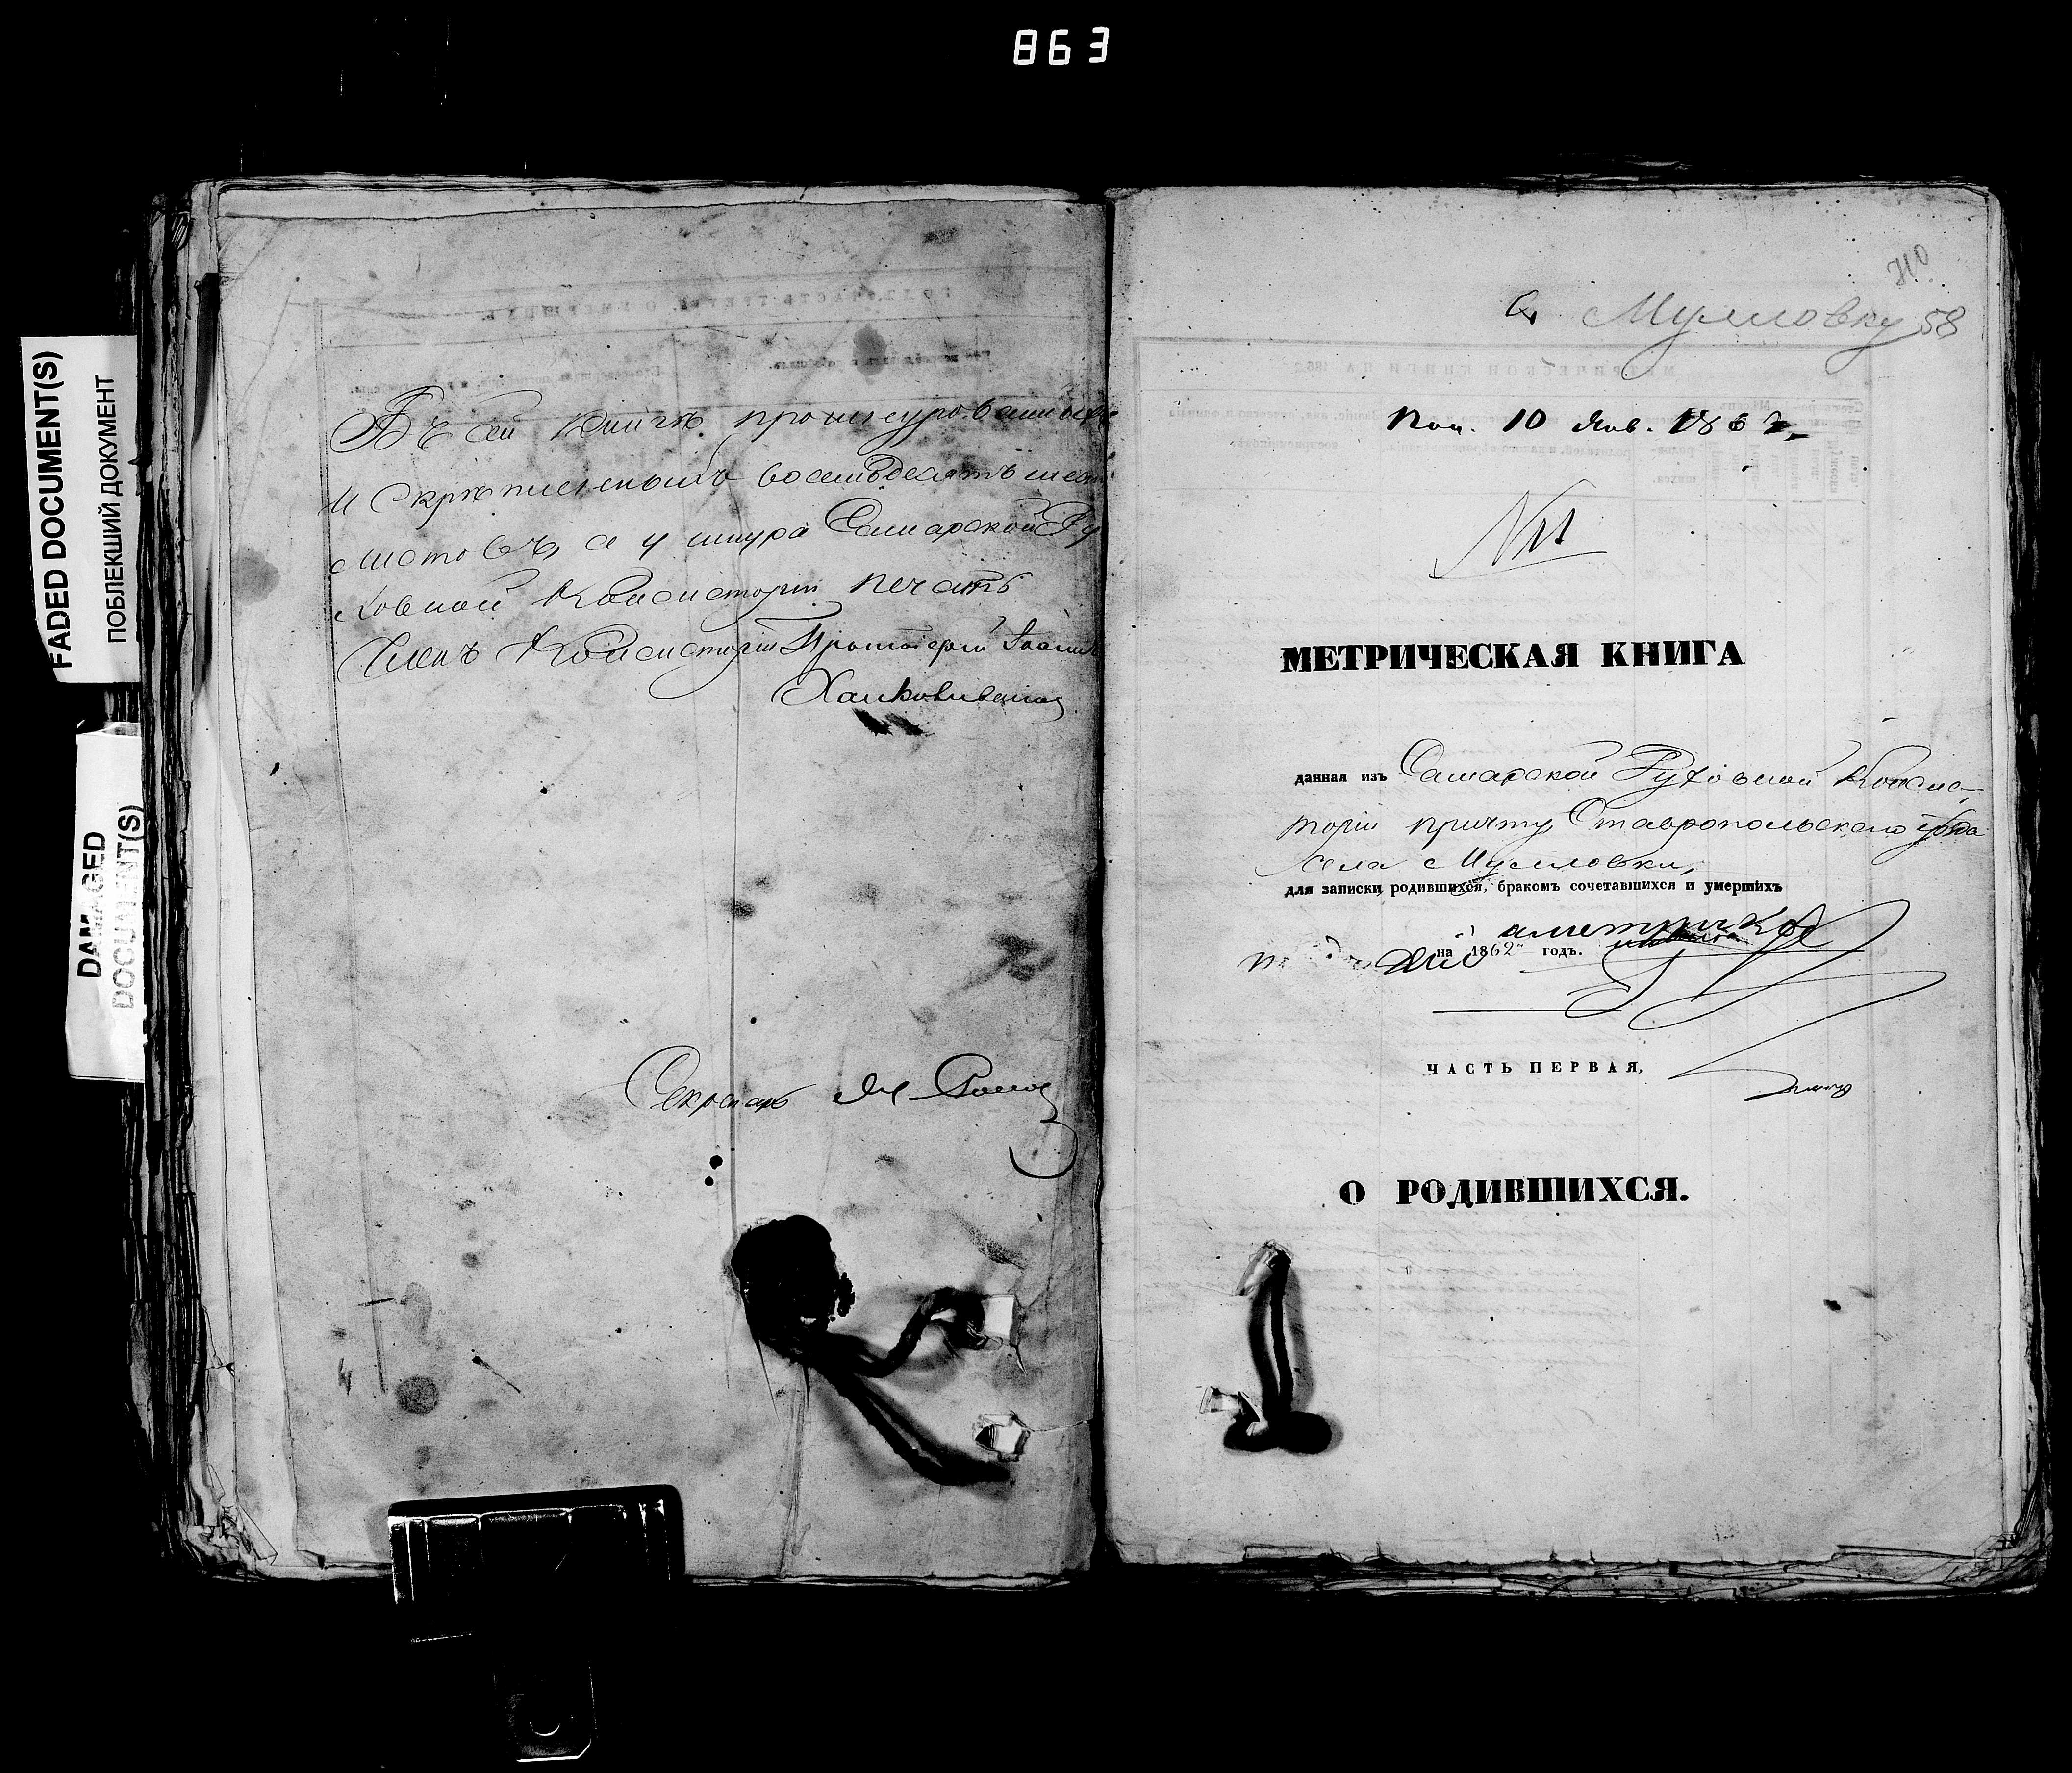 863
FADED DOCUMENT(S)
ПОБЛЕКШИЙ ДОКУМЕНТ
DAMAGED
DOCUMENT(S)
Въ сей книгѣ прошнурованныхъ
и скрѣпленныхъ восемьдесятъ шесть
листовъ, а у шнура Самарской Ду
ховной Консисторіи печать
Членъ Консисторіи Протоіерей Іоаннъ
Секретарь
310
С. Мулловку 58
Пол. 10 Янв. 1863
№1
МЕТРИЧЕСКАЯ КНИГА
данная изъ Самарской Духовной Консис-
торіи причту Ставропольскаго уѣзда
села Мулловки,
для записки родившихся, бракомъ сочетавшихся и умершихъ
на 1862 годъ.
ЧАСТЬ ПЕРВАЯ,
О РОДИВШИХСЯ.